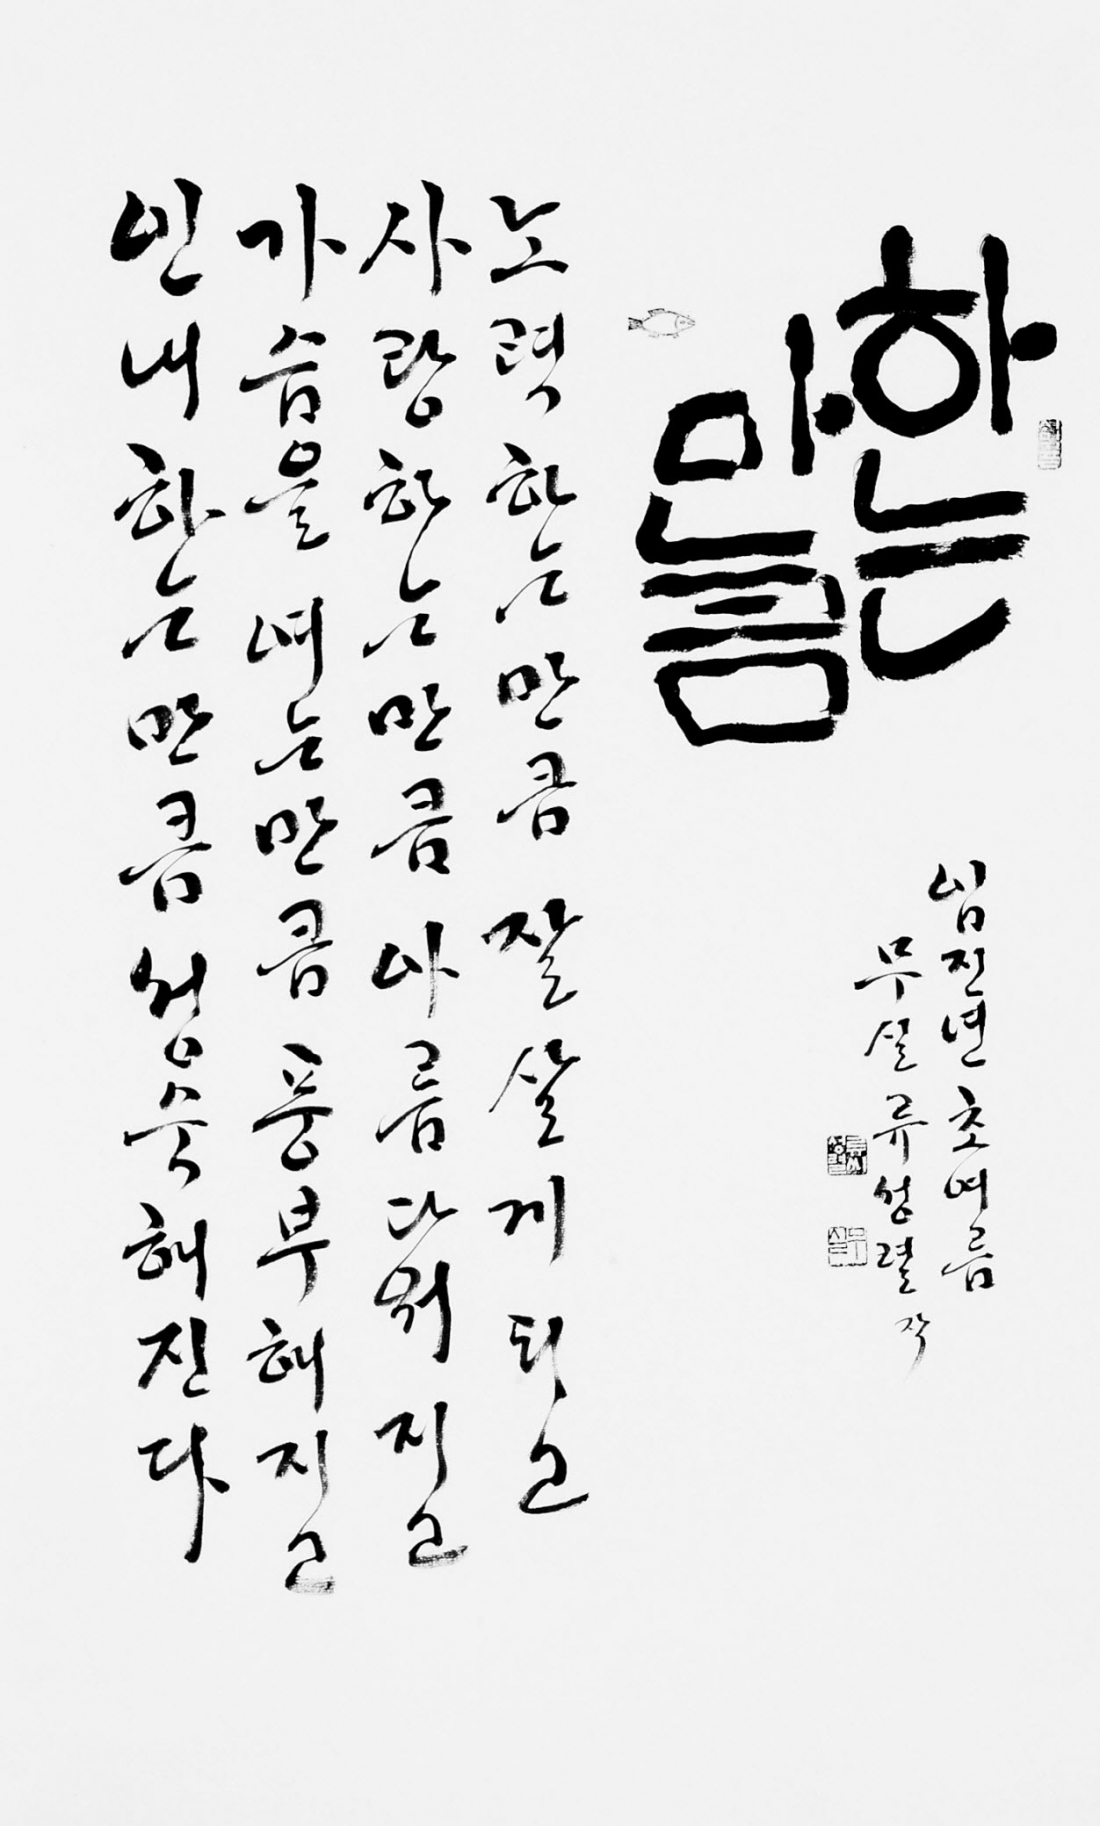 하는
만큼
노력하는만큼 잘살게 되고
사랑하는만큼 아름다워지고
가슴을 여는만큼 풍부해지고
인내하는만큼 성숙해진다
임진년 초여름
무실 류성렬 작